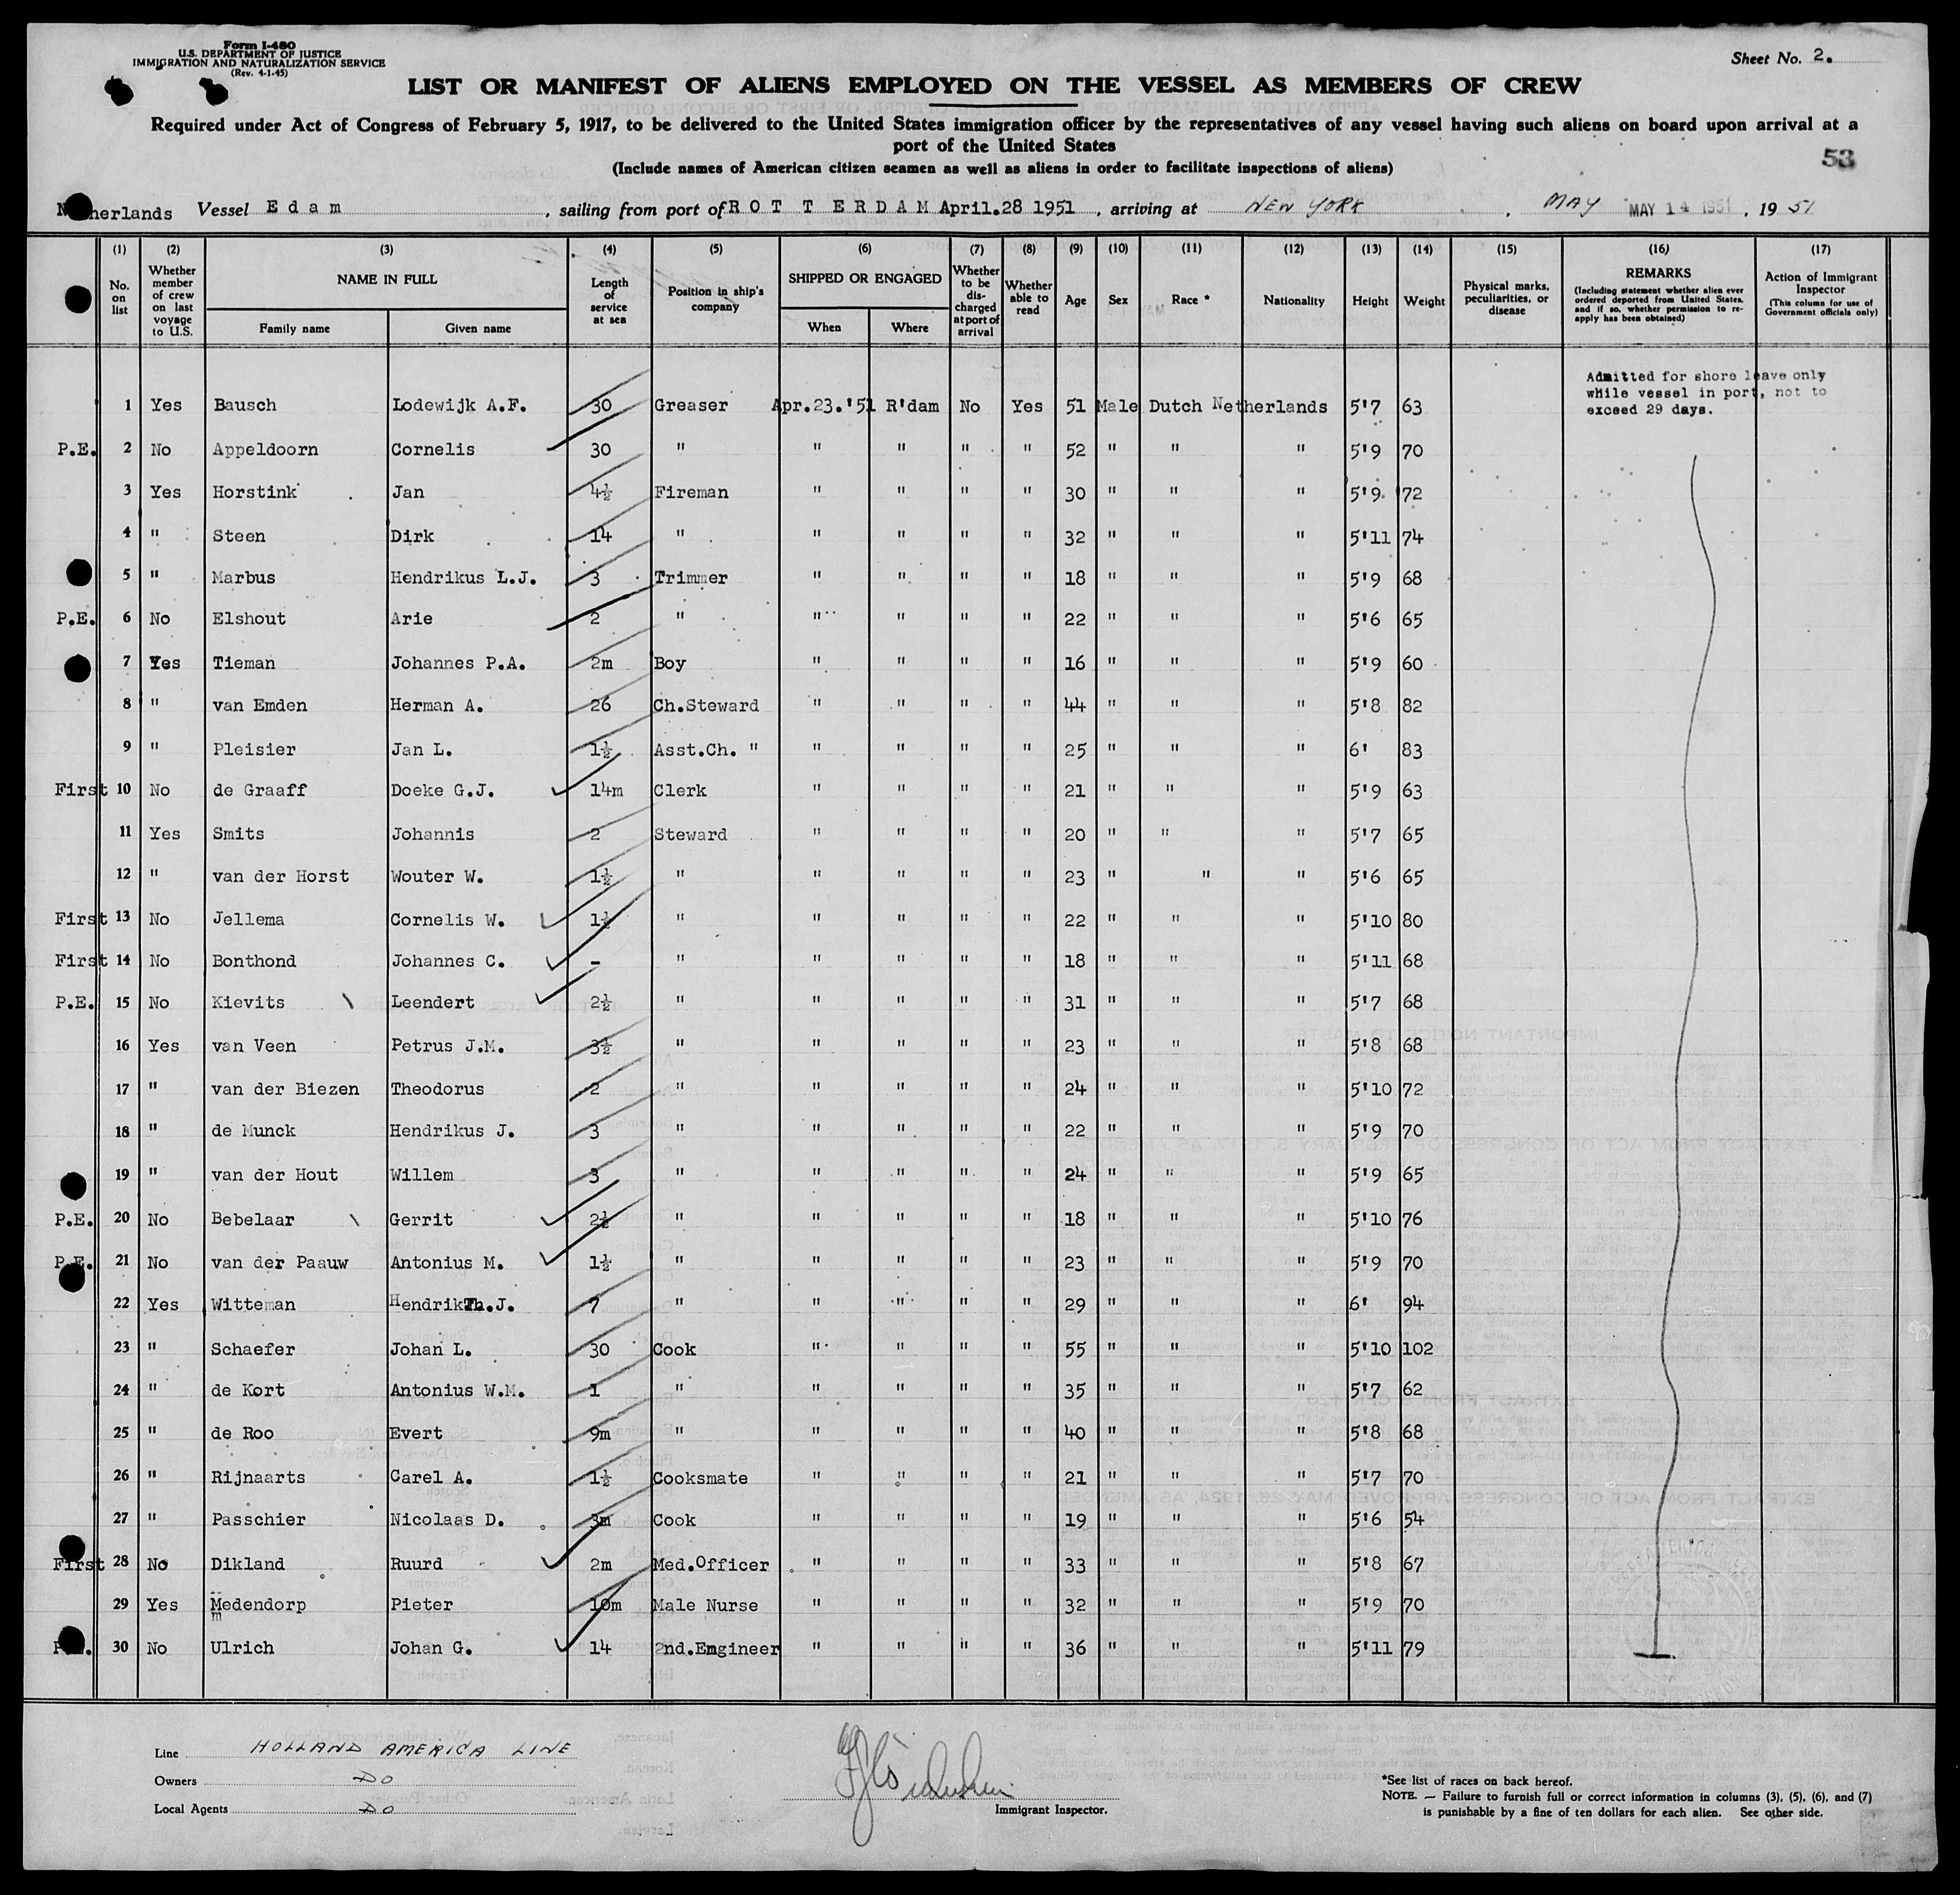 Form I-480
U.S. DEPARTMENT OF JUSTICE
IMMIGRATION AND NATURALIZATION SERVICE
(Rev. 4-1-45)
Sheet No. 2.
LIST OR MANIFEST OF ALIENS EMPLOYED ON THE VESSEL AS MEMBERS OF CREW
Required under Act of Congress of February 5, 1917, to be delivered to the United States immigration officer by the representatives of any vessel having such aliens on board upon arrival at a
port of the United States
(Include names of American citizen seamen as well as aliens in order to facilitate inspections of aliens)
53
Netherlands Vessel Edam, sailing from port of ROTTERDAM April.28 1951, arriving at NEW YORK, MAY MAY 14 1951, 19 51
(1) (2) (3) (4) (5) (6) (7) (8) (9) (10) (11) (12) (13) (14) (15) (16) (17)
No. on list
Whether member of crew on last voyage to U.S.
NAME IN FULL
Family name Given name
Length of service at sea
Position in ship's company
SHIPPED OR ENGAGED
When Where
Whether to be discharged at port of arrival
Whether able to read
Age Sex Race * Nationality Height Weight
Physical marks, peculiarities, or disease
REMARKS
(Including statement whether alien ever ordered deported from United States, and if so, whether permission to re-apply has been obtained)
Action of Immigrant Inspector
(This column for use of Government officials only)
Admitted for shore leave only
while vessel in port, not to
exceed 29 days.
1 Yes Bausch Lodewijk A.F. 30 Greaser Apr.23.'51 R'dam No Yes 51 Male Dutch Netherlands 5'7 63
P.E. 2 No Appeldoorn Cornelis 30 " " " " " 52 " " " 5'9 70
3 Yes Horstink Jan 4½ Fireman " " " " 30 " " " 5'9 72
4 " Steen Dirk 14 " " " " " 32 " " " 5'11 74
5 " Marbus Hendrikus L.J. 3 Trimmer " " " " 18 " " " 5'9 68
P.E. 6 No Elshout Arie 2 " " " " " 22 " " " 5'6 65
7 Yes Tieman Johannes P.A. 2m Boy " " " " 16 " " " 5'9 60
8 " van Emden Herman A. 26 Ch.Steward " " " " 44 " " " 5'8 82
9 " Pleisier Jan L. 1½ Asst.Ch. " " " " " 25 " " " 6' 83
First 10 No de Graaff Doeke G.J. 14m Clerk " " " " 21 " " " 5'9 63
11 Yes Smits Johannis 2 Steward " " " " 20 " " " 5'7 65
12 " van der Horst Wouter W. 1½ " " " " " 23 " " " 5'6 65
First 13 No Jellema Cornelis W. 1½ " " " " " 22 " " " 5'10 80
First 14 No Bonthond Johannes C. - " " " " " 18 " " " 5'11 68
P.E. 15 No Kievits Leendert 2½ " " " " " 31 " " " 5'7 68
16 Yes van Veen Petrus J.M. 3½ " " " " " 23 " " " 5'8 68
17 " van der Biezen Theodorus 2 " " " " " 24 " " " 5'10 72
18 " de Munck Hendrikus J. 3 " " " " " 22 " " " 5'9 70
19 " van der Hout Willem 3 " " " " " 24 " " " 5'9 65
P.E. 20 No Bebelaar Gerrit 2½ " " " " " 18 " " " 5'10 76
P.E. 21 No van der Paauw Antonius M. 1½ " " " " " 23 " " " 5'9 70
22 Yes Witteman Hendrik Th.J. 7 " " " " " 29 " " " 6' 94
23 " Schaefer Johan L. 30 Cook " " " " 55 " " " 5'10 102
24 " de Kort Antonius W.M. 1 " " " " " 35 " " " 5'7 62
25 " de Roo Evert 9m " " " " " 40 " " " 5'8 68
26 " Rijnaarts Carel A. 1½ Cooksmate " " " " 21 " " " 5'7 70
27 " Passchier Nicolaas D. 3m Cook " " " " 19 " " " 5'6 54
First 28 No Dikland Ruurd 2m Med.Officer " " " " 33 " " " 5'8 67
29 Yes Medendorp Pieter 10m Male Nurse " " " " 32 " " " 5'9 70
30 No Ulrich Johan G. 14 2nd.Emgineer " " " " 36 " " " 5'11 79
Line HOLLAND AMERICA LINE
Owners DO
Local Agents DO
Immigrant Inspector.
*See list of races on back hereof.
NOTE. — Failure to furnish full or correct information in columns (3), (5), (6), and (7)
is punishable by a fine of ten dollars for each alien. See other side.